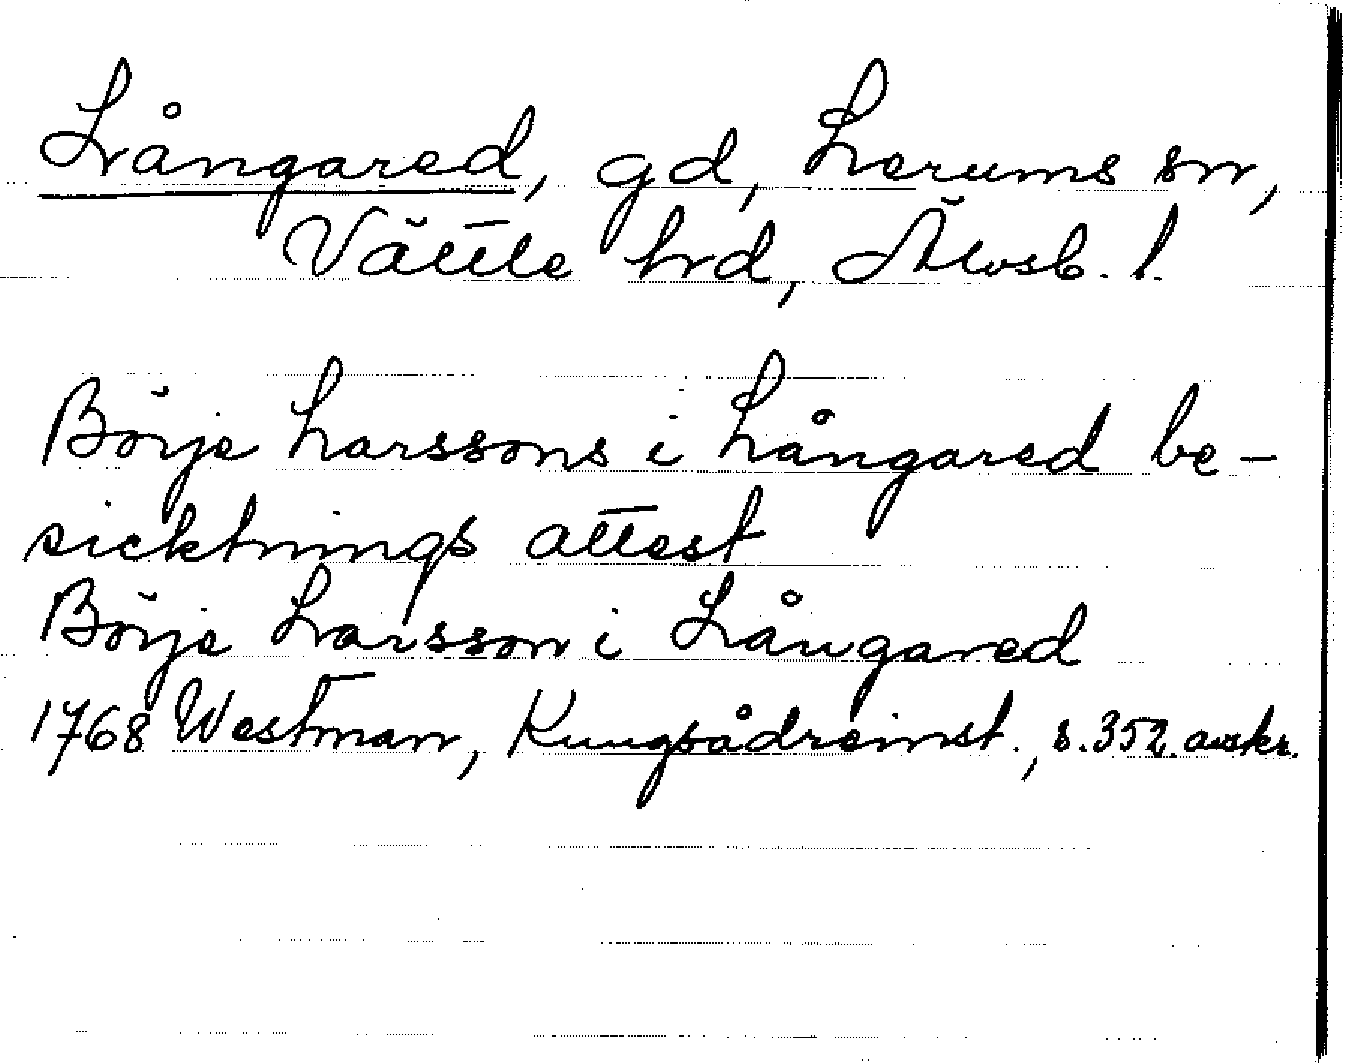 Långared, gd, Lerums sn,
Vättle hrd, Älvsb. l.
Börje Larssons i Långared be-
sicktnings attest
Börje Larsson i Långared
1768 Westman, Kungsådreinst., s. 352. avskr.